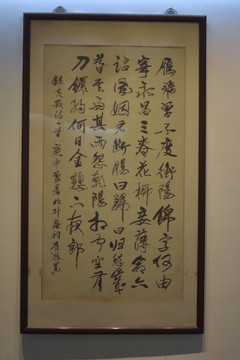 雁飛曾不度衡陽錦字何由
寄永昌三春花柳妾薄命六
詔風烟君斷腸曰歸曰歸愁歲
暮其雨其雨怨朝陽相聞空有
刀鐶約何日金雞下夜郎